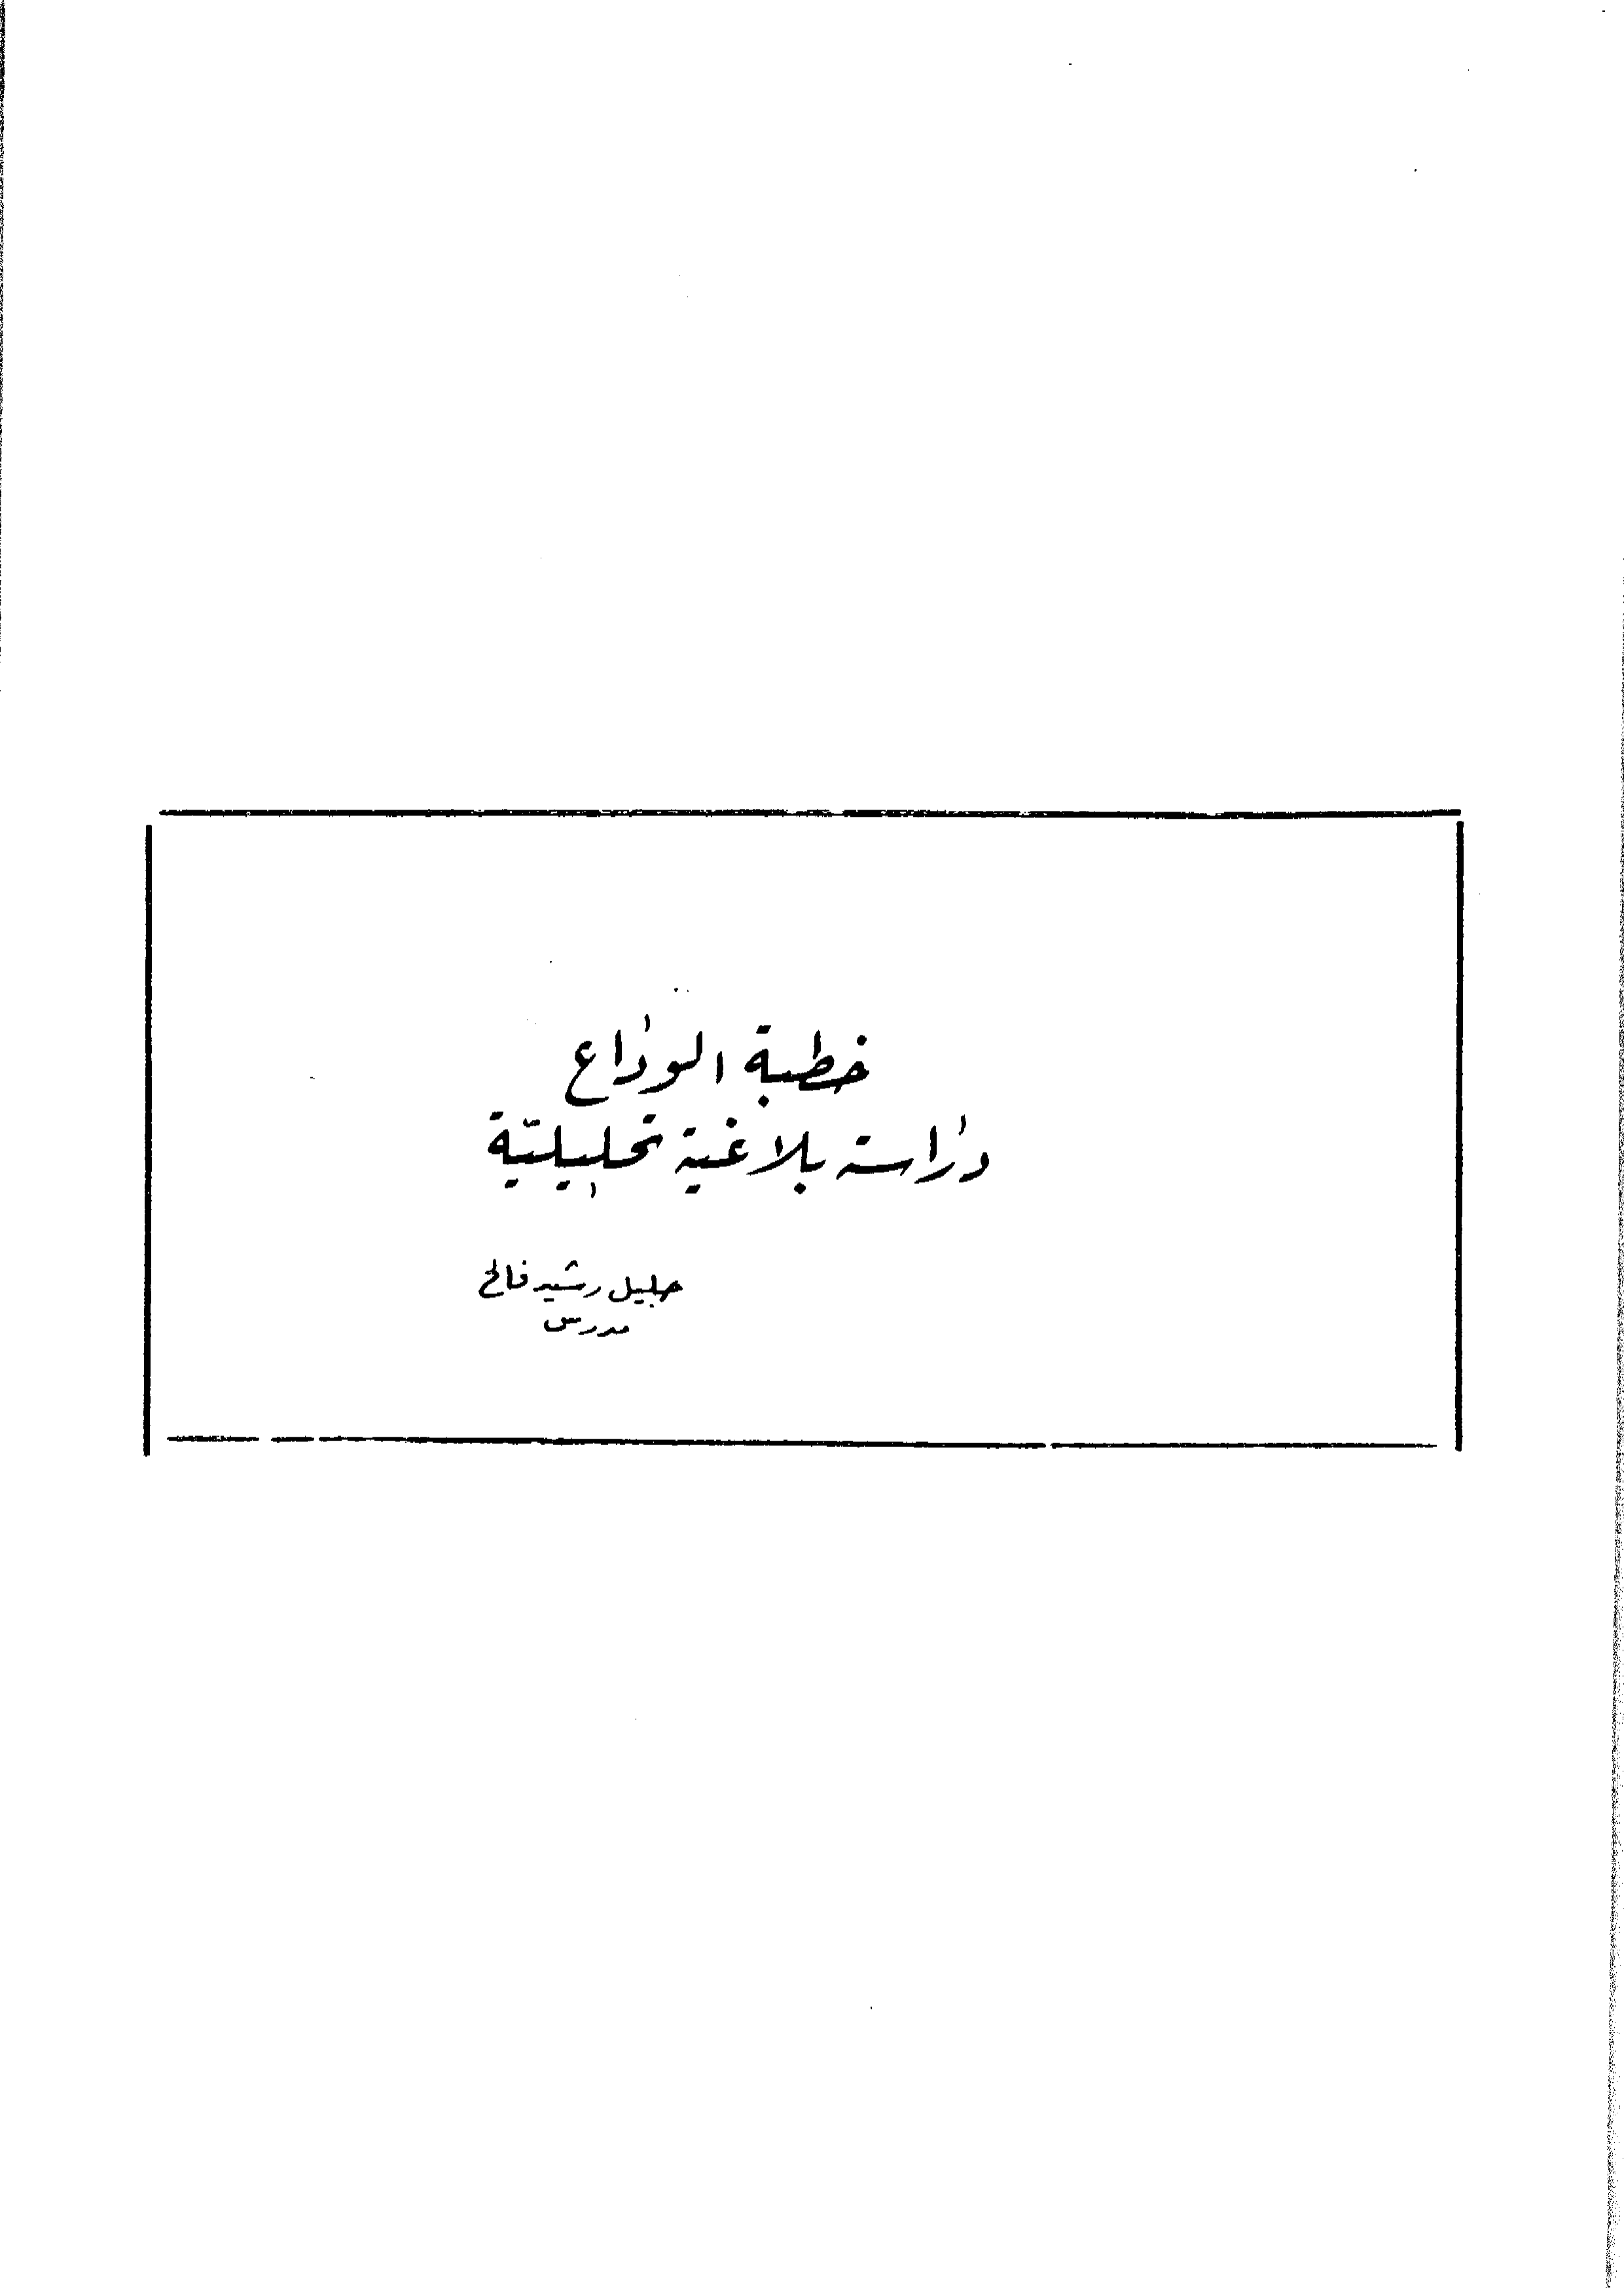 خطبة الوداع
دراسة بلاغية تحليليّة
جليل رشيد فالح
مدرس